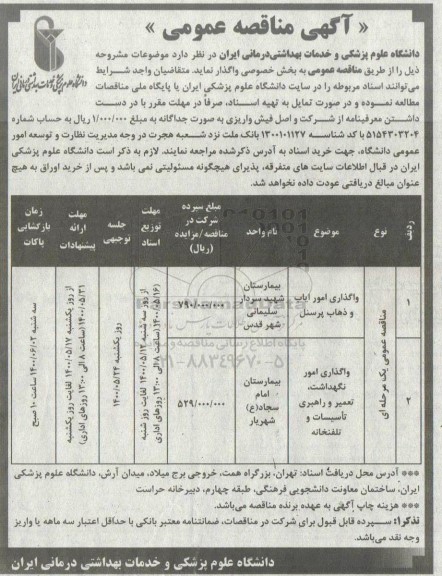 « آگهی مناقصه عمومی »
دانشگاه علوم پزشکی و خدمات بهداشتی درمانی ایران
دانشگاه علوم پزشکی و خدمات بهداشتی‌درمانی ایران در نظر دارد موضوعات مشروحه
ذیل را از طریق مناقصه عمومی به بخش خصوصی واگذار نماید. متقاضیان واجد شرایط
می‌توانند اسناد مربوطه را در سایت دانشگاه علوم پزشکی ایران یا پایگاه ملی مناقصات
مطالعه نموده و در صورت تمایل به تهیه اسناد، صرفاً در مهلت مقرر با در دست
داشتن معرفینامه از شرکت و اصل فیش واریزی به صورت جداگانه به مبلغ ۱/۰۰۰/۰۰۰ ریال به حساب شماره
۵۱۵۴۳۰۳۲۰۴ با کد شناسه ۱۳۰۰۱۰۱۱۲۷ بانک ملت نزد شعبه هجرت در وجه مدیریت نظارت و توسعه امور
عمومی دانشگاه، جهت خرید اسناد به آدرس ذکرشده مراجعه نمایند. لازم به ذکر است دانشگاه علوم پزشکی
ایران در قبال اطلاعات سایت های متفرقه، پذیرای هیچگونه مسئولیتی نمی باشد و پس از خرید اوراق به هیچ
عنوان مبالغ دریافتی عودت داده نخواهد شد.
ردیف
نوع
موضوع
نام واحد
مبلغ سپرده
شرکت در
مناقصه/مزایده
(ریال)
مهلت
توزیع
اسناد
جلسه
توجیهی
مهلت
ارائه
پیشنهادات
زمان
بازگشایی
پاکات
۱
مناقصه عمومی یک مرحله ای
واگذاری امور ایاب
و ذهاب پرسنل
بیمارستان
شهید سردار
سلیمانی
شهر قدس
۷۹۰/۰۰۰/۰۰۰
از روز سه شنبه ۱۴۰۰/۰۵/۱۲ لغایت روز شنبه
۱۴۰۰/۰۵/۱۶(ساعت ۸ الی ۱۳:۰۰ روزهای اداری)
روز یکشنبه ۱۴۰۰/۰۵/۲۴
از روز یکشنبه ۱۴۰۰/۰۵/۱۷ لغایت روز یکشنبه
۱۴۰۰/۰۵/۳۱(ساعت ۸ الی ۱۳:۰۰ روزهای اداری)
سه شنبه ۱۴۰۰/۰۶/۰۲ ساعت ۱۰ صبح
۲
واگذاری امور
نگهداشت،
تعمیر و راهبری
تأسیسات و
تلفنخانه
بیمارستان
امام
سجاد(ع)
شهریار
۵۲۹/۰۰۰/۰۰۰
پایگاه اطلاع رسانی مناقصه و مزایده
۰۲۱-۸۸۳۴۹۶۷۰-۵
*** آدرس محل دریافت اسناد: تهران، بزرگراه همت، خروجی برج میلاد، میدان آرش، دانشگاه علوم پزشکی
ایران، ساختمان معاونت دانشجویی فرهنگی، طبقه چهارم، دبیرخانه حراست
*** هزینه چاپ آگهی به عهده برنده مناقصه می‌باشد.
تذکر۱: سپرده قابل قبول برای شرکت در مناقصات، ضمانتنامه معتبر بانکی با حداقل اعتبار سه ماهه یا واریز
وجه نقد می‌باشد.
دانشگاه علوم پزشکی و خدمات بهداشتی درمانی ایران